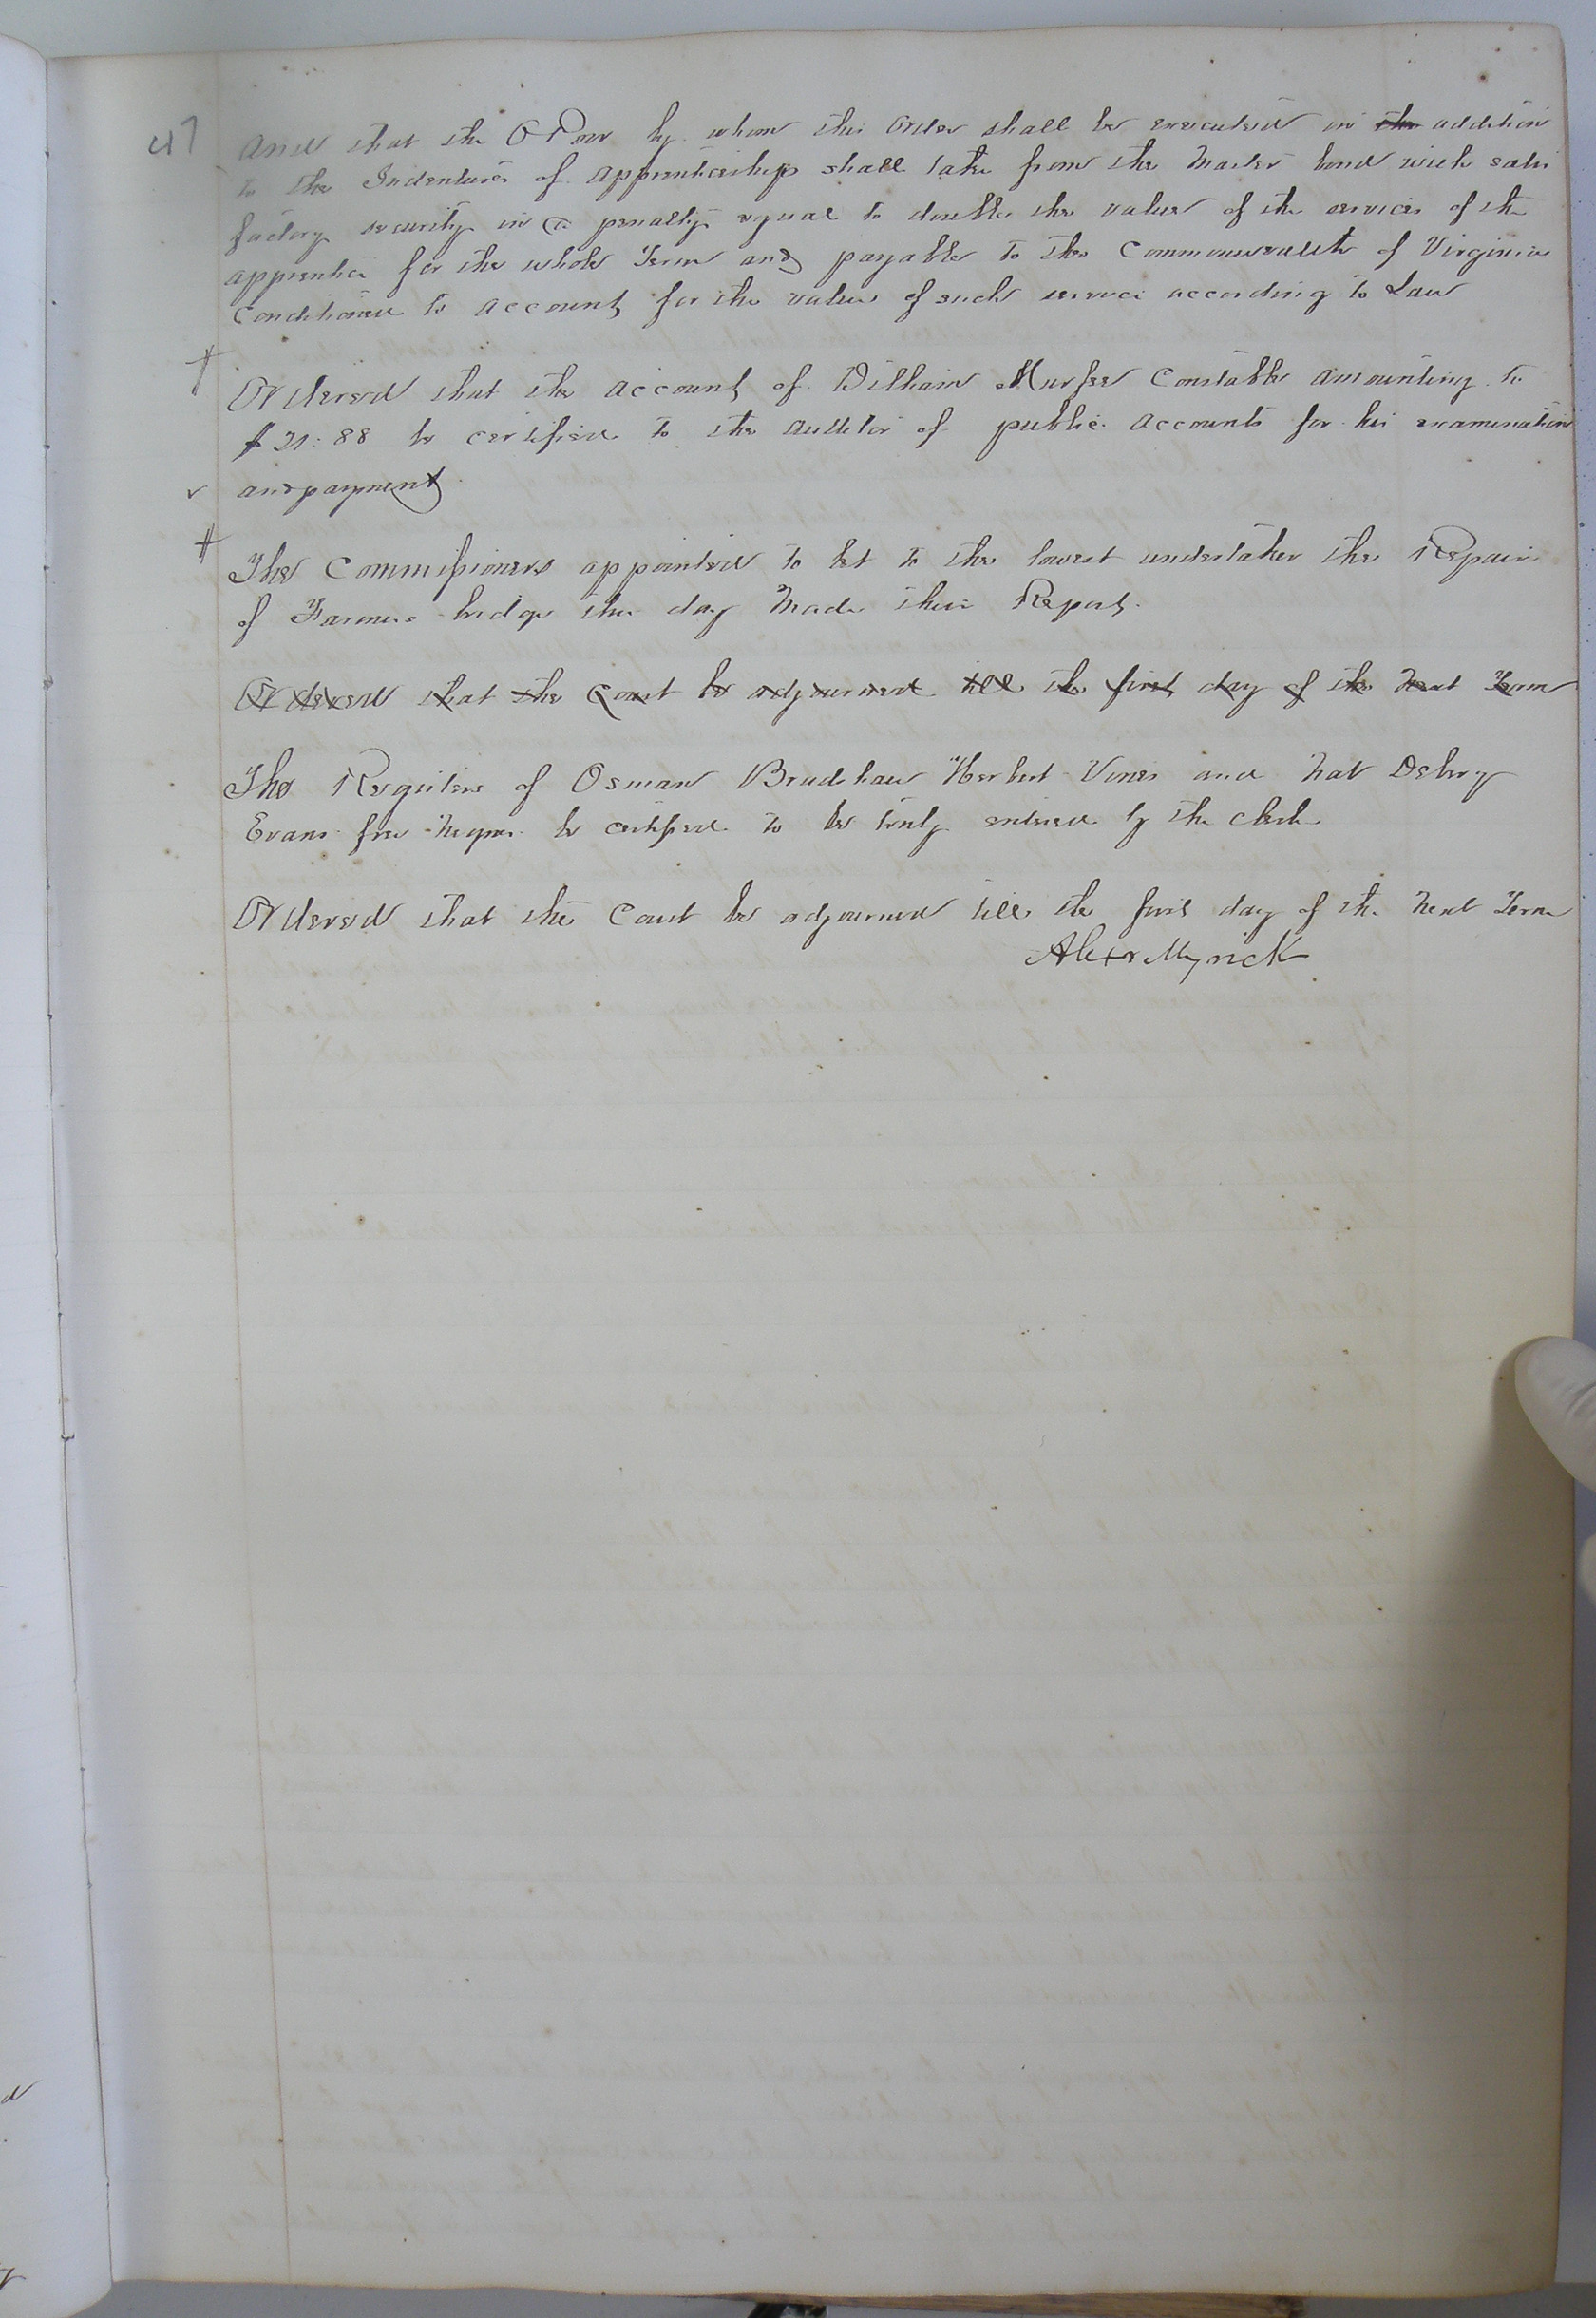 47
and that the O Poor by whom this Order shall be executed in the addition
to the Indentures of apprenticeship shall take from the Master bond with satis
factory security in a penalty equal to double the value of the services of the
apprentice for the whole Term and payable to the Commonwealth of Virginia
Conditioned to account for the value of such service according to Law
Ordered that the account of William Murfee Constable amounting to
$21:88 be certified to the Auditor of public accounts for his examination
and payment
The Commissioners appointed to let to the lowest undertaker the Repair
of Farmers bridge this day Made their Report.
Ordered that the Court be adjourned till the first day of the Next Term
The Registers of Osman Bradshaw Herbert Vines and Nat Debry
Evans free Negroes be certified to be truly entered by the clerk
Ordered that the Court be adjourned till the first day of the Next Term
Alexr Myrick